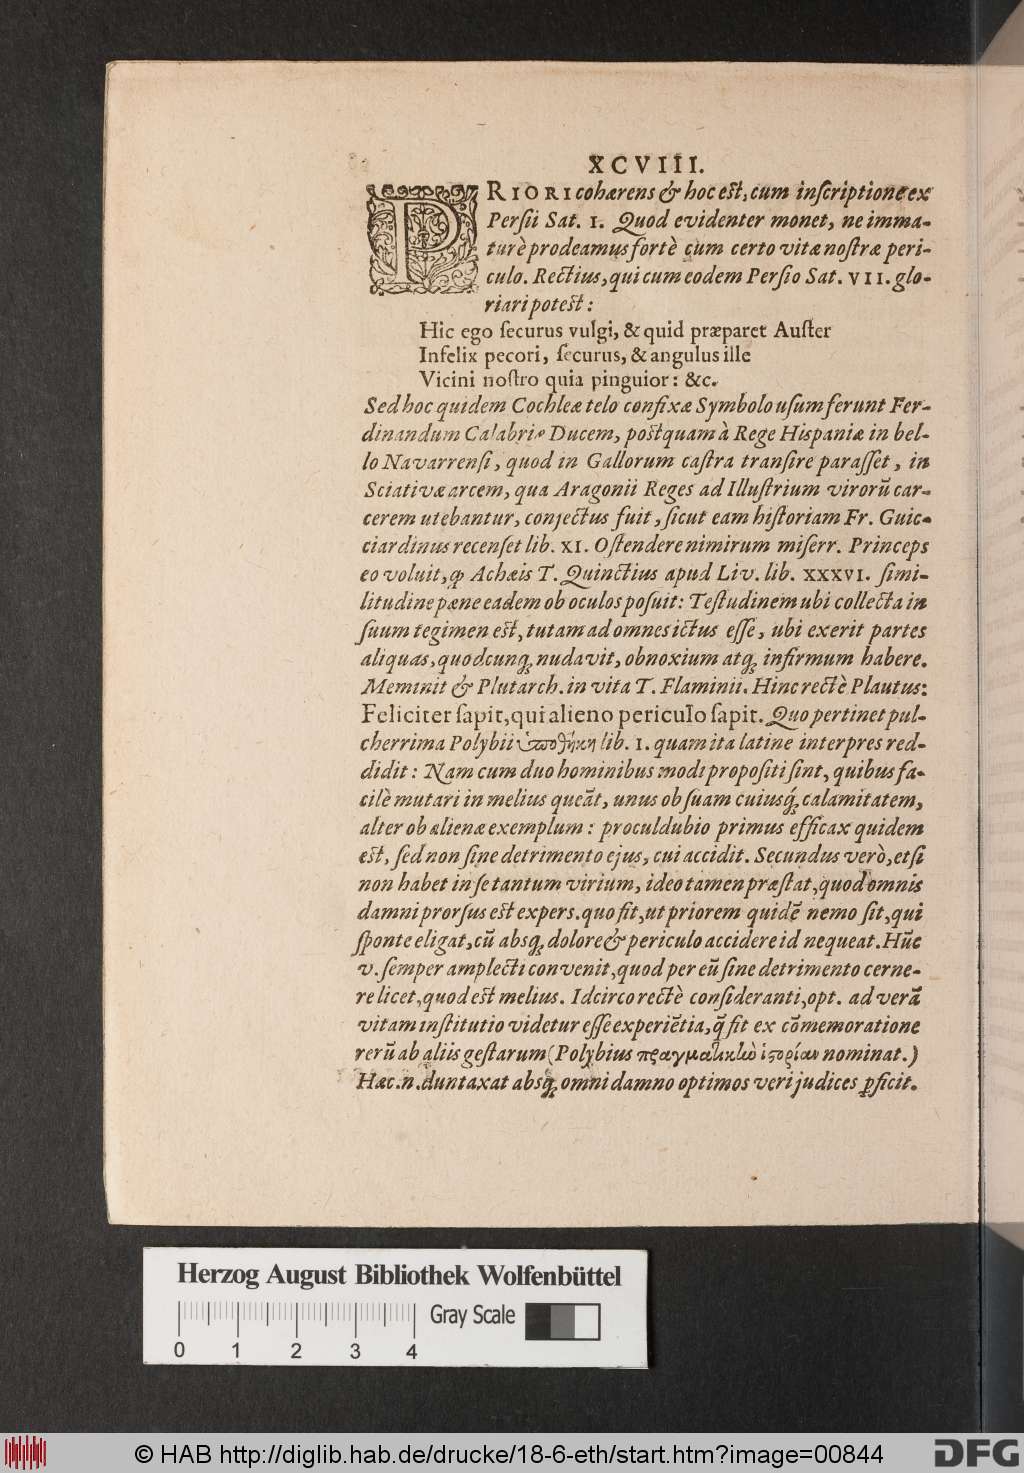 XCVIII.
PRIORI cohærens & hoc est, cum inſcriptione ex
Perſii Sat. I. Quod evidenter monet, ne imma-
turè prodeamus fortè cum certo vitæ noſtræ peri-
culo. Rectius, qui cum eodem Perſio Sat. VII. glo-
riari potest:
Hic ego ſecurus vulgi, & quid præparet Auſter
Infelix pecori, ſecurus, & angulus ille
Vicini noſtro quia pinguior: &c.
Sed hoc quidem Cochleæ telo confixæ Symbolo uſum ferunt Fer-
dinandum Calabriæ Ducem, postquam à Rege Hiſpaniæ in bel-
lo Navarrenſi, quod in Gallorum caſtra tranſire paraſſet, in
Sciativæ arcem, qua Aragonii Reges ad Illuſtrium virorū car-
cerem utebantur, conjectus fuit, ſicut eam hiſtoriam Fr. Guic-
ciardinus recenſet lib. XI. Oſtendere nimirum miſerr. Princeps
eo voluit, ꝙ Achæis T. Quinctius apud Liv. lib. XXXVI. ſimi-
litudine pæne eadem ob oculos poſuit: Teſtudinem ubi collecta in
ſuum tegimen est, tutam ad omnes ictus eſſe, ubi exerit partes
aliquas, quodcunq; nudavit, obnoxium atq; infirmum habere.
Meminit & Plutarch. in vita T. Flaminii. Hinc rectè Plautus:
Feliciter ſapit, qui alieno periculo ſapit. Quo pertinet pul-
cherrima Polybii ὑποθήκη lib. I. quam ita latine interpres red-
didit: Nam cum duo hominibus modi propoſiti ſint, quibus fa-
cilè mutari in melius queāt, unus ob ſuam cuiusq́; calamitatem,
alter ob alienæ exemplum: proculdubio primus efficax quidem
est, ſed non ſine detrimento ejus, cui accidit. Secundus verò, etſi
non habet in ſe tantum virium, ideo tamen præſtat, quod omnis
damni prorſus est expers. quo fit, ut priorem quidē nemo ſit, qui
ſponte eligat, cū absq; dolore & periculo accidere id nequeat. Hūc
v. ſemper amplecti convenit, quod per eū ſine detrimento cerne-
re licet, quod est melius. Idcirco rectè conſideranti, opt. ad verā
vitam inſtitutio videtur eſſe experiētia, q̄ fit ex cōmemoratione
rerū ab aliis geſtarum (Polybius πραγματικὴν ἱστορίαν nominat.)
Hæc.n. duntaxat absq; omni damno optimos veri judices ꝑficit.
Herzog August Bibliothek Wolfenbüttel
Gray Scale
0 1 2 3 4
© HAB http://diglib.hab.de/drucke/18-6-eth/start.htm?image=00844
DFG